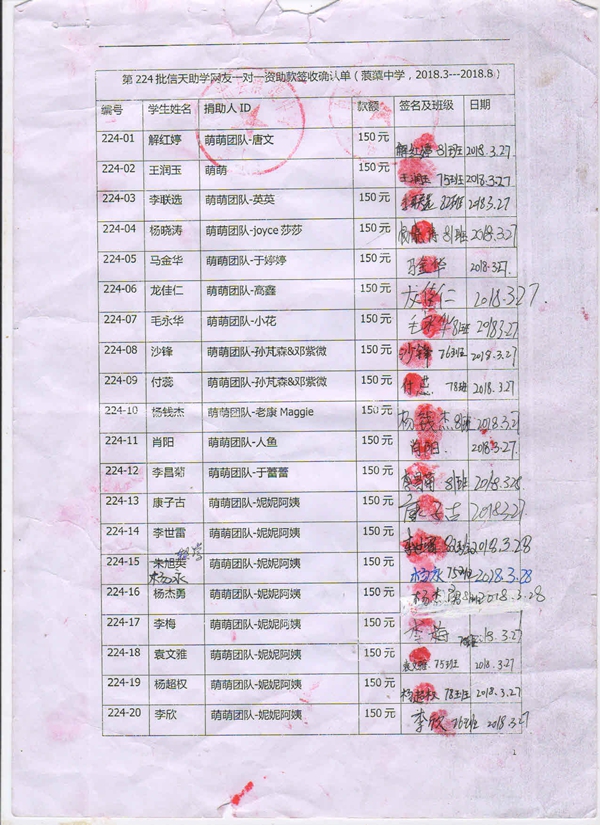 第224批信天助学网友一对一资助款签收确认单（蒗蕖中学，2018.3---2018.8）
编号 学生姓名 捐助人ID 款额 签名及班级 日期
224-01 解红婷 萌萌团队-唐文 150元 解红婷 81班 2018.3.27
224-02 王润玉 萌萌 150元 王润玉 75班 2018.3.27
224-03 李联选 萌萌团队-英英 150元 李联选 82班 2018.3.27
224-04 杨晓涛 萌萌团队-joyce莎莎 150元 杨晓涛 81班 2018.3.27
224-05 马金华 萌萌团队-于婷婷 150元 2018.3.27.
224-06 龙佳仁 萌萌团队-高鑫 150元 龙佳仁 2018.3.27.
224-07 毛永华 萌萌团队-小花 150元 毛永华 2018.3.27
224-08 沙锋 萌萌团队-孙芃森&邓紫微 150元 沙锋 76班 2018.3.27
224-09 付蕊 萌萌团队-孙芃森&邓紫微 150元 付蕊 78班 2018.3.27
224-10 杨钱杰 萌萌团队-老康Maggie 150元 杨钱杰 2018.3.27
224-11 肖阳 萌萌团队-人鱼 150元 肖阳. 2018.3.27.
224-12 李昌菊 萌萌团队-于蕾蕾 150元 李昌菊 81班 2018.3.28
224-13 康子古 萌萌团队-妮妮阿姨 150元 康子古 2018.3.27
224-14 李世雷 萌萌团队-妮妮阿姨 150元 李世雷 2018.3.28
224-15 朱旭英 杨永 萌萌团队-妮妮阿姨 150元 杨永 75班 2018.3.28
224-16 杨杰勇 萌萌团队-妮妮阿姨 150元 杨杰勇 2018.3.28
224-17 李梅 萌萌团队-妮妮阿姨 150元 李梅 18.3.27
224-18 袁文雅 萌萌团队-妮妮阿姨 150元 袁文雅 75班 2018.3.27
224-19 杨超权 萌萌团队-妮妮阿姨 150元 杨超权 78班 2018.3.27
224-20 李欣 萌萌团队-妮妮阿姨 150元 李欣 76班 2018.3.27
1